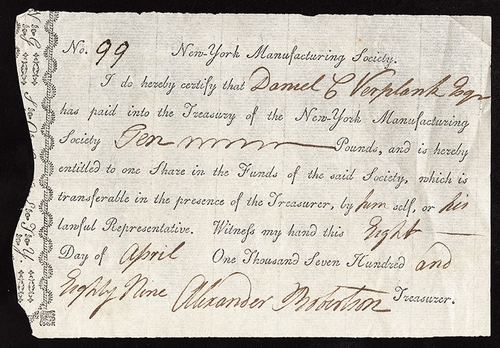 No. 99 New-York Manufacturing Society.
I do hereby certify that Daniel C Verplank Esqr
has paid into the Treasury of the New-York Manufacturing
Society Ten Pounds, and is hereby
entitled to one Share in the Funds of the said Society, which is
transferable in the presence of the Treasurer, by him self, or his
lawful Representative. Witness my hand this Eight
Day of April One Thousand Seven Hundred and
Eighty Nine Alexander Robertson Treasurer.